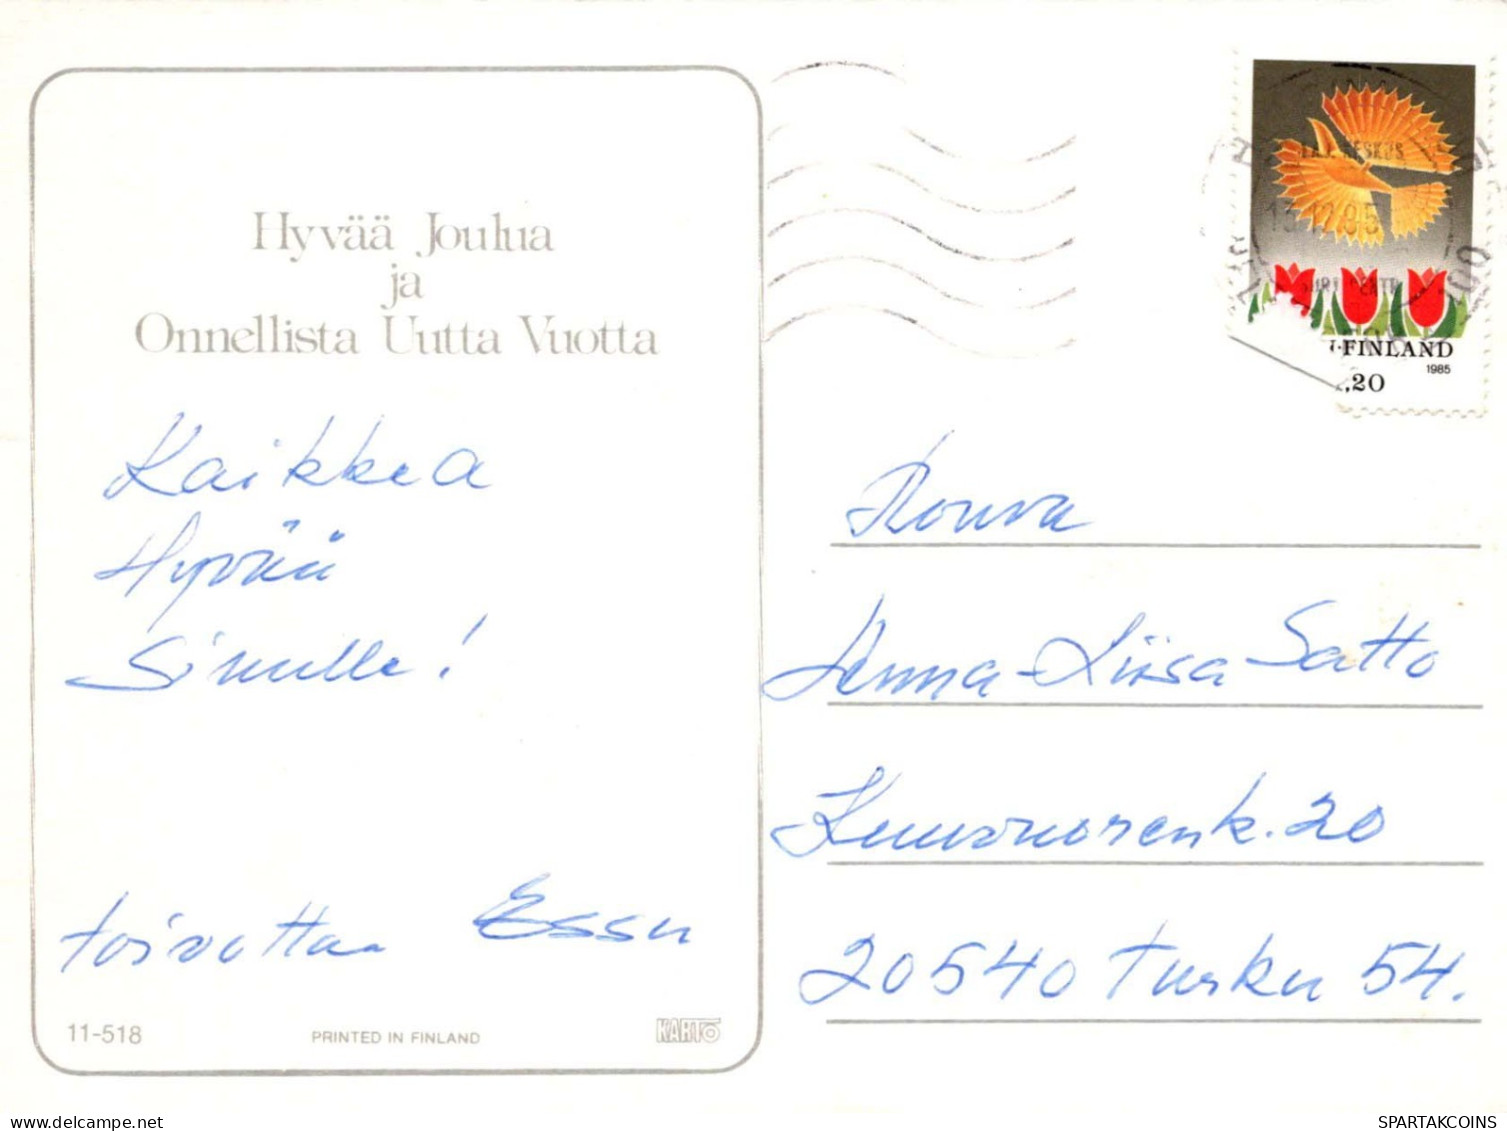 Hyvää Joulua
ja
Onnellista Uutta Vuotta
Kaikkea
Hyvää
Sinulle!
toivottaa Essu
11-518
PRINTED IN FINLAND
KARTO
13.12.85
FINLAND
1985
,20
Rouva
Anna-Liisa Satto
Kuuvuorenk. 20
20540 Turku 54.
delcampe.net
SPARTAKCOINS